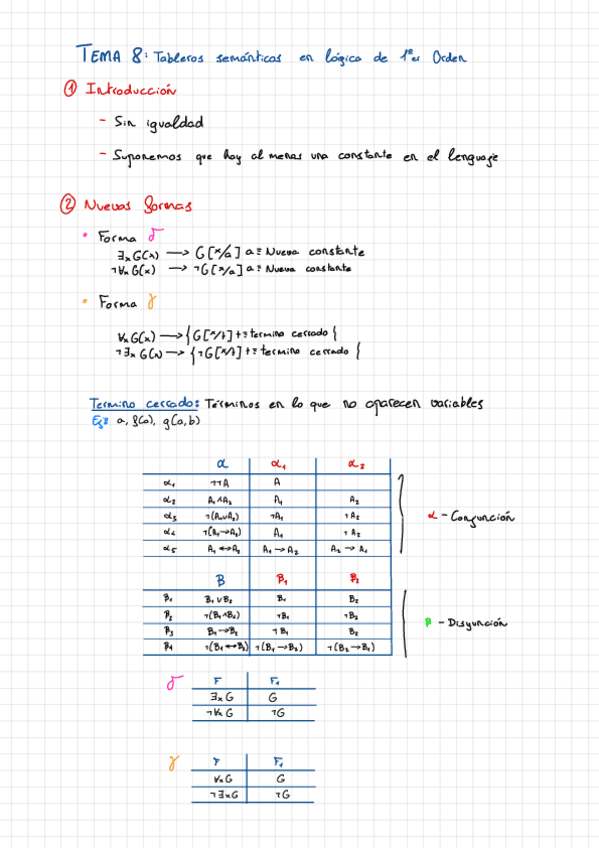 TEMA 8: Tableros semánticos en lógica de 1er Orden
① Introducción
- Sin igualdad
- Suponemos que hay al menos una constante en el lenguaje
② Nuevas formas
• Forma δ
∃x G(x) → G[x/a] a ≡ Nueva constante
¬∀x G(x) → ¬G[x/a] a ≡ Nueva constante
• Forma γ
∀x G(x) → {G[x/t] t ≡ termino cerrado}
¬∃x G(x) → {¬G[x/t] t ≡ termino cerrado}
Termino cerrado: Términos en lo que no aparecen variables
Ej: a, f(a), g(a,b)
α α₁ α₂
α₁ ¬¬A A
α₂ A₁∧A₂ A₁ A₂
α₃ ¬(A₁∨A₂) ¬A₁ ¬A₂
α₄ ¬(A₁→A₂) A₁ ¬A₂
α₅ A₁↔A₂ A₁→A₂ A₂→A₁
α - Conjunción
B B₁ B₂
β₁ B₁∨B₂ B₁ B₂
β₂ ¬(B₁∧B₂) ¬B₁ ¬B₂
β₃ B₁→B₂ ¬B₁ B₂
β₄ ¬(B₁↔B₂) ¬(B₁→B₂) ¬(B₂→B₁)
β - Disyunción
δ F F₁
∃x G G
¬∀x G ¬G
γ F F₁
∀x G G
¬∃x G ¬G